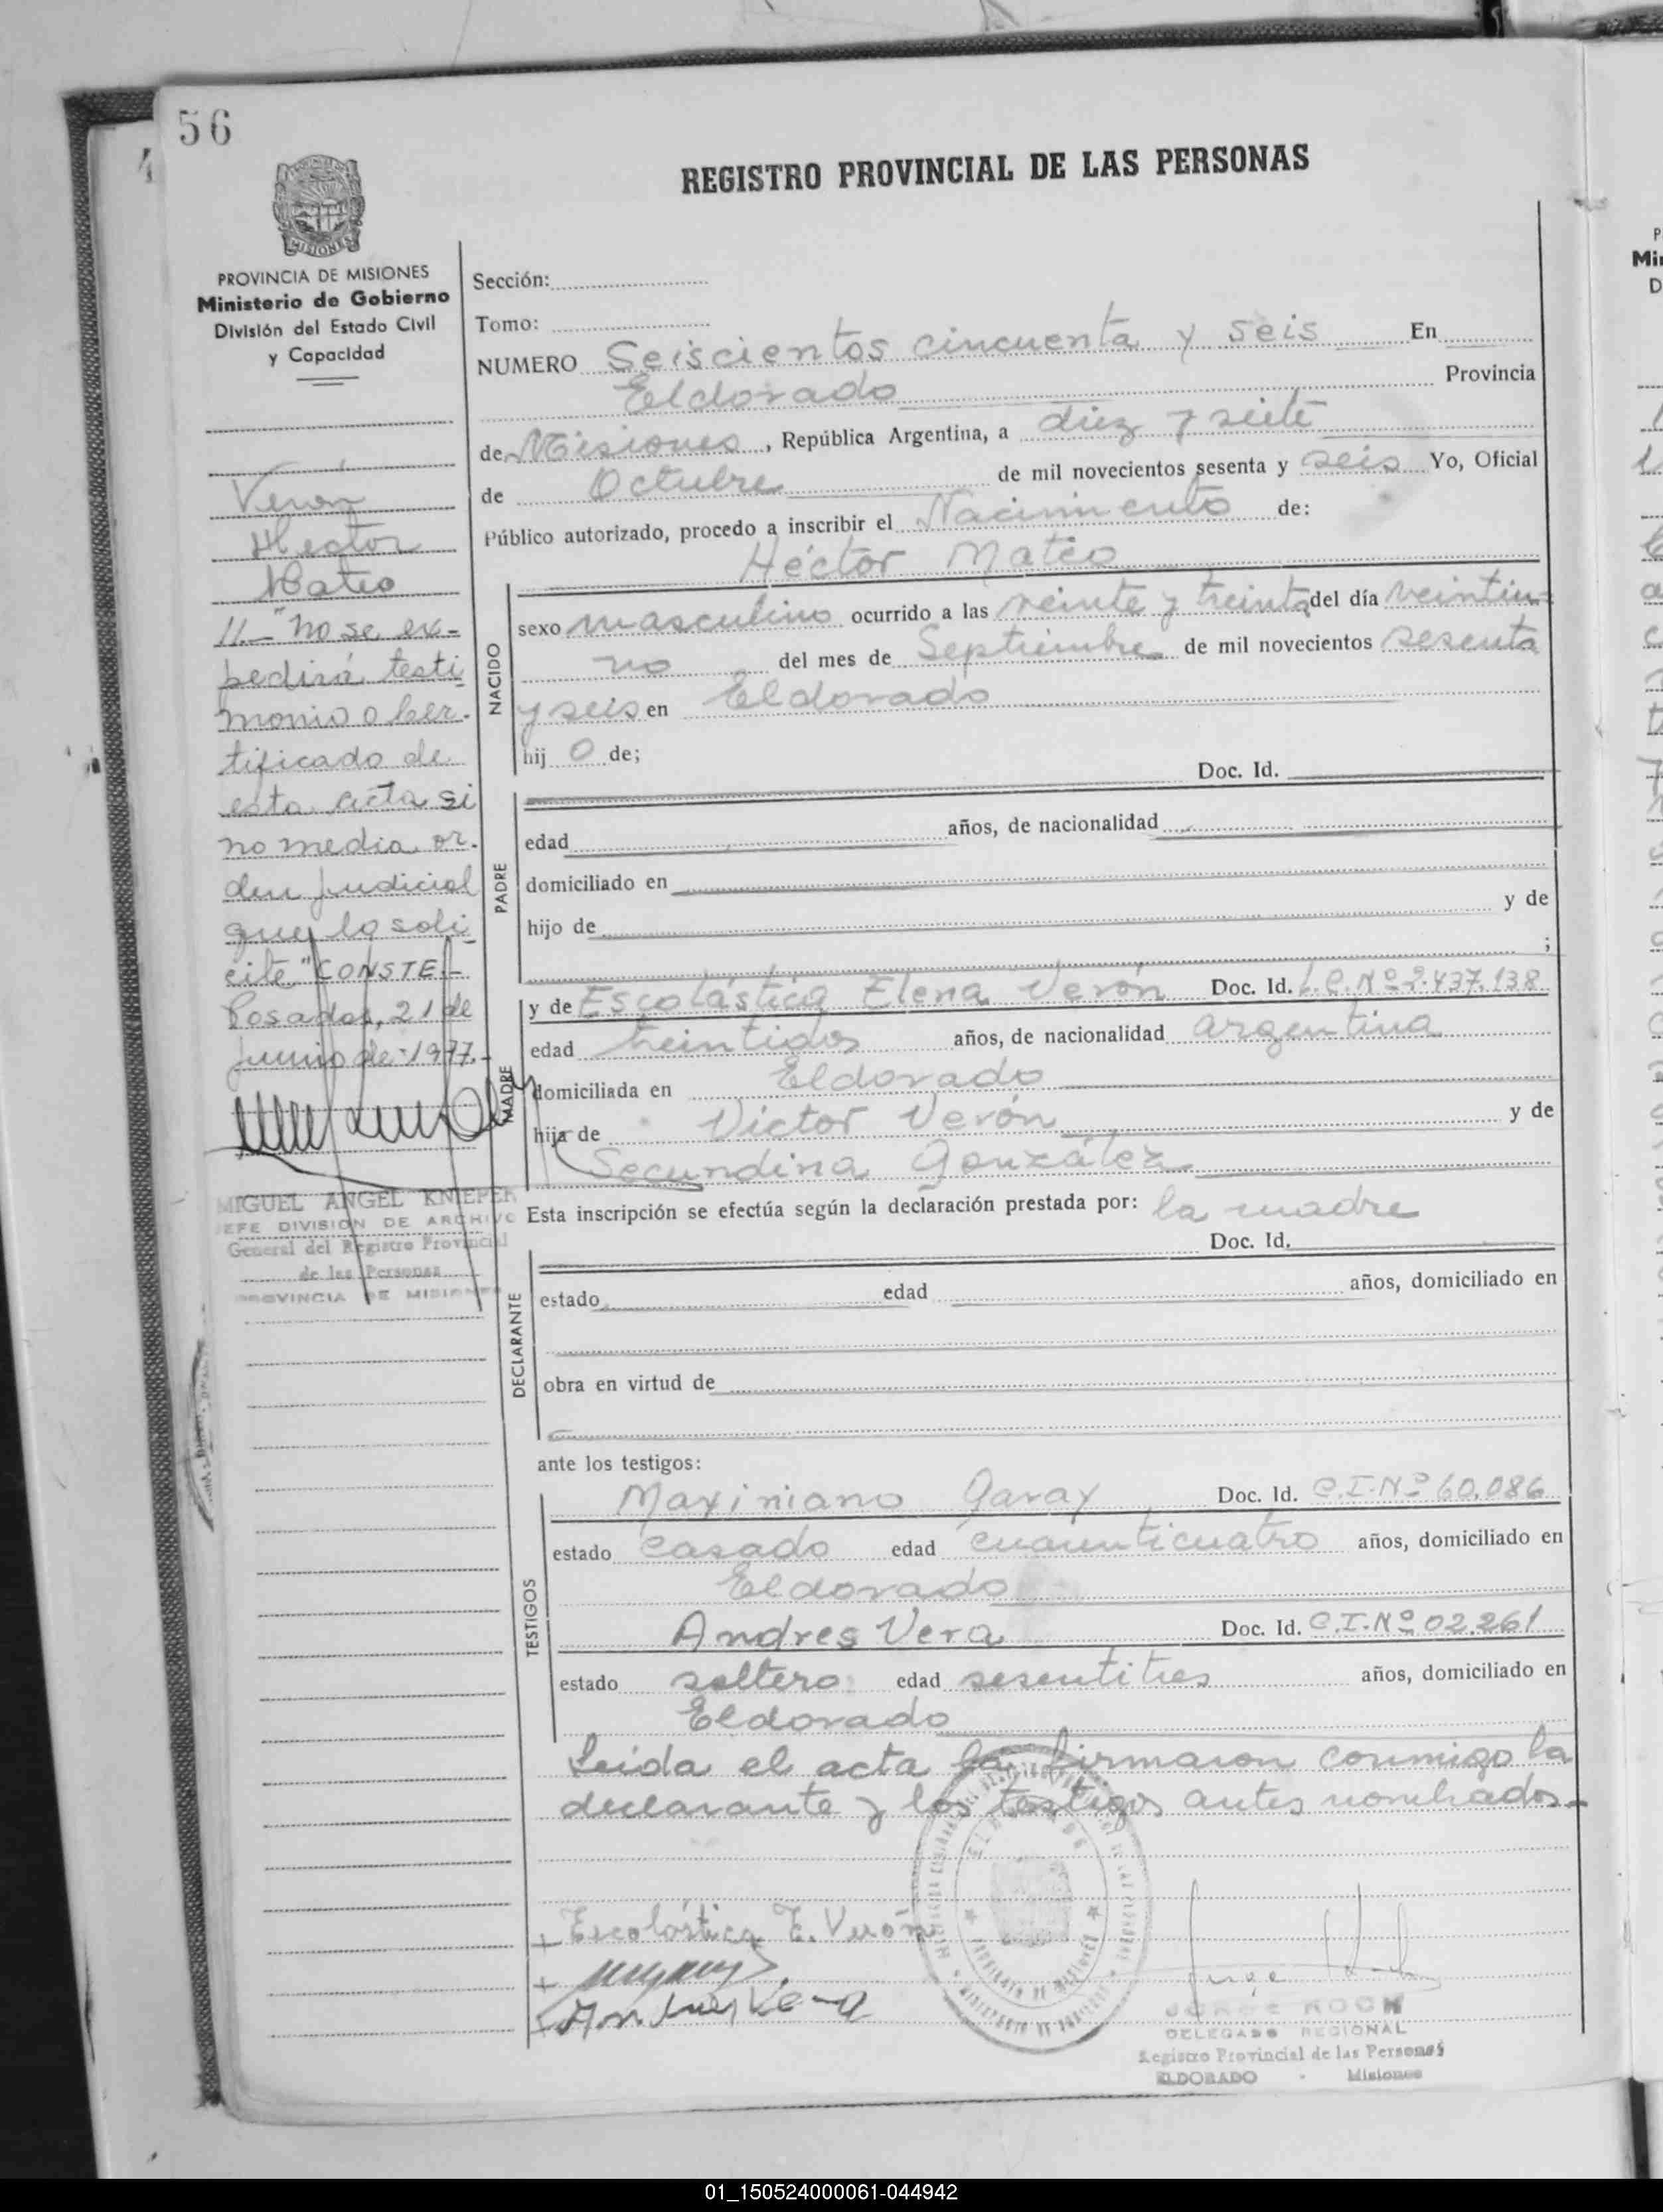 56
REGISTRO PROVINCIAL DE LAS PERSONAS
MISIONES
PROVINCIA DE MISIONES
Ministerio de Gobierno
División del Estado Civil
y Capacidad
Verón
Hector
Mateo
11.- "no se ex-
pedirá testi
monio o cer-
tificado de
esta acta si
no media or-
den judicial
que lo soli
cite" CONSTE.-
Posadas, 21 de
junio de 1977.-
MIGUEL ANGEL KNIEPER
JEFE DIVISION DE ARCHIVO
General del Registro Provincial
de las Personas
PROVINCIA DE MISIONES
Sección:
Tomo:
NUMERO Seiscientos cincuenta y seis En
Eldorado Provincia
de Misiones, República Argentina, a diez y siete
de Octubre de mil novecientos sesenta y seis Yo, Oficial
Público autorizado, procedo a inscribir el Nacimiento de:
Héctor Mateo
NACIDO
sexo masculino ocurrido a las veinte y treinta del día veintiu=
no del mes de Septiembre de mil novecientos sesenta
y seis en Eldorado
hij o de;
PADRE
Doc. Id.
edad años, de nacionalidad
domiciliado en
hijo de y de
;
MADRE
y de Escolástica Elena Verón Doc. Id. L.C.Nº 2.437.138
edad treintidos años, de nacionalidad argentina
domiciliada en Eldorado
hija de Victor Verón y de
Secundina González
Esta inscripción se efectúa según la declaración prestada por: la madre
DECLARANTE
Doc. Id.
estado edad años, domiciliado en
obra en virtud de
ante los testigos:
TESTIGOS
Maximiano Garay Doc. Id. C.I.Nº 60.086
estado casado edad cuarenticuatro años, domiciliado en
Eldorado
Andres Vera Doc. Id. C.I.Nº 02.261
estado soltero edad sesentitres años, domiciliado en
Eldorado
Leida el acta la firmaron conmigo la
declarante y los testigos antes nombrados.-
+ Escolástica E. Verón
+
+ Andres Vera
JORGE KOCH
DELEGADO REGIONAL
Registro Provincial de las Personas
ELDORADO - Misiones
01_150524000061-044942